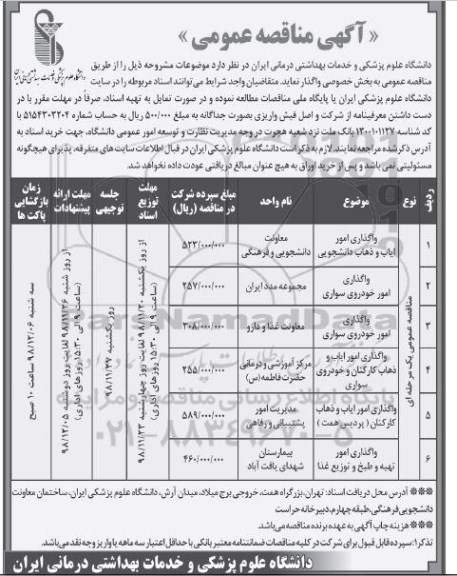 « آگهی مناقصه عمومی »
دانشگاه علوم پزشکی و خدمات بهداشتی درمانی ایران در نظر دارد موضوعات مشروحه ذیل را از طریق
مناقصه عمومی به بخش خصوصی واگذار نماید. متقاضیان واجد شرایط می‌توانند اسناد مربوطه را در سایت
دانشگاه علوم پزشکی ایران یا پایگاه ملی مناقصات مطالعه نموده و در صورت تمایل به تهیه اسناد، صرفاً در مهلت مقرر با در
دست داشتن معرفینامه از شرکت و اصل فیش واریزی بصورت جداگانه به مبلغ ۵۰۰/۰۰۰ ریال به حساب شماره ۵۱۵۴۳۰۳۲۰۴ با
کد شناسه ۱۲۰۰۱۰۱۲۷ بانک ملت نزد شعبه هجرت در وجه مدیریت نظارت و توسعه امور عمومی دانشگاه، جهت خرید اسناد به
آدرس ذکرشده مراجعه نمایند. لازم به ذکر است دانشگاه علوم پزشکی ایران در قبال اطلاعات سایت های متفرقه، پذیرای هیچگونه
مسئولیتی نمی باشد و پس از خرید اوراق به هیچ عنوان مبالغ دریافتی عودت داده نخواهد شد.
ردیف نوع موضوع نام واحد مبلغ سپرده شرکت در مناقصه (ریال) مهلت توزیع اسناد جلسه توجیهی مهلت ارائه پیشنهادات زمان بازگشایی پاکت ها
مناقصه عمومی یک مرحله ای
۱ واگذاری امور ایاب و ذهاب دانشجویی معاونت دانشجویی و فرهنگی ۵۲۳/۰۰۰/۰۰۰
۲ واگذاری امور خودروی سواری مجموعه مدد ایران ۲۵۷/۰۰۰/۰۰۰
۳ واگذاری امور خودروی سواری معاونت غذا و دارو ۳۰۸/۰۰۰/۰۰۰
۴ واگذاری امور ایاب و ذهاب کارکنان و خودروی سواری مرکز آموزشی و درمانی حضرت فاطمه (س) ۲۵۵/۰۰۰/۰۰۰
۵ واگذاری امور ایاب و ذهاب کارکنان ( پردیس همت ) مدیریت امور پشتیبانی و رفاهی ۵۸۹/۰۰۰/۰۰۰
۶ واگذاری امور تهیه و طبخ و توزیع غذا بیمارستان شهدای یافت آباد ۴۶۰/۰۰۰/۰۰۰
از روز یکشنبه ۹۸/۱۱/۲۰ لغایت روز چهارشنبه ۹۸/۱۱/۲۳
(ساعت ۹ الی ۱۵:۳۰ روزهای اداری)
روز یکشنبه ۹۸/۱۱/۲۷
از روز شنبه ۹۸/۱۱/۲۶ لغایت روز دوشنبه ۹۸/۱۲/۰۵
(ساعت ۹ الی ۱۵:۳۰ روزهای اداری)
سه شنبه ۹۸/۱۲/۰۶ ساعت ۱۰ صبح
۰۲۱-۸۸۳۴۹۶۷۰-۵
*** آدرس محل دریافت اسناد: تهران، بزرگراه همت، خروجی برج میلاد، میدان آرش، دانشگاه علوم پزشکی ایران، ساختمان معاونت
دانشجویی فرهنگی، طبقه چهارم، دبیرخانه حراست
*** هزینه چاپ آگهی به عهده برنده مناقصه می‌باشد.
تذکر۱: سپرده قابل قبول برای شرکت در کلیه مناقصات ضمانتنامه معتبر بانکی با حداقل اعتبار سه ماهه یا واریز وجه نقد می‌باشد.
دانشگاه علوم پزشکی و خدمات بهداشتی درمانی ایران